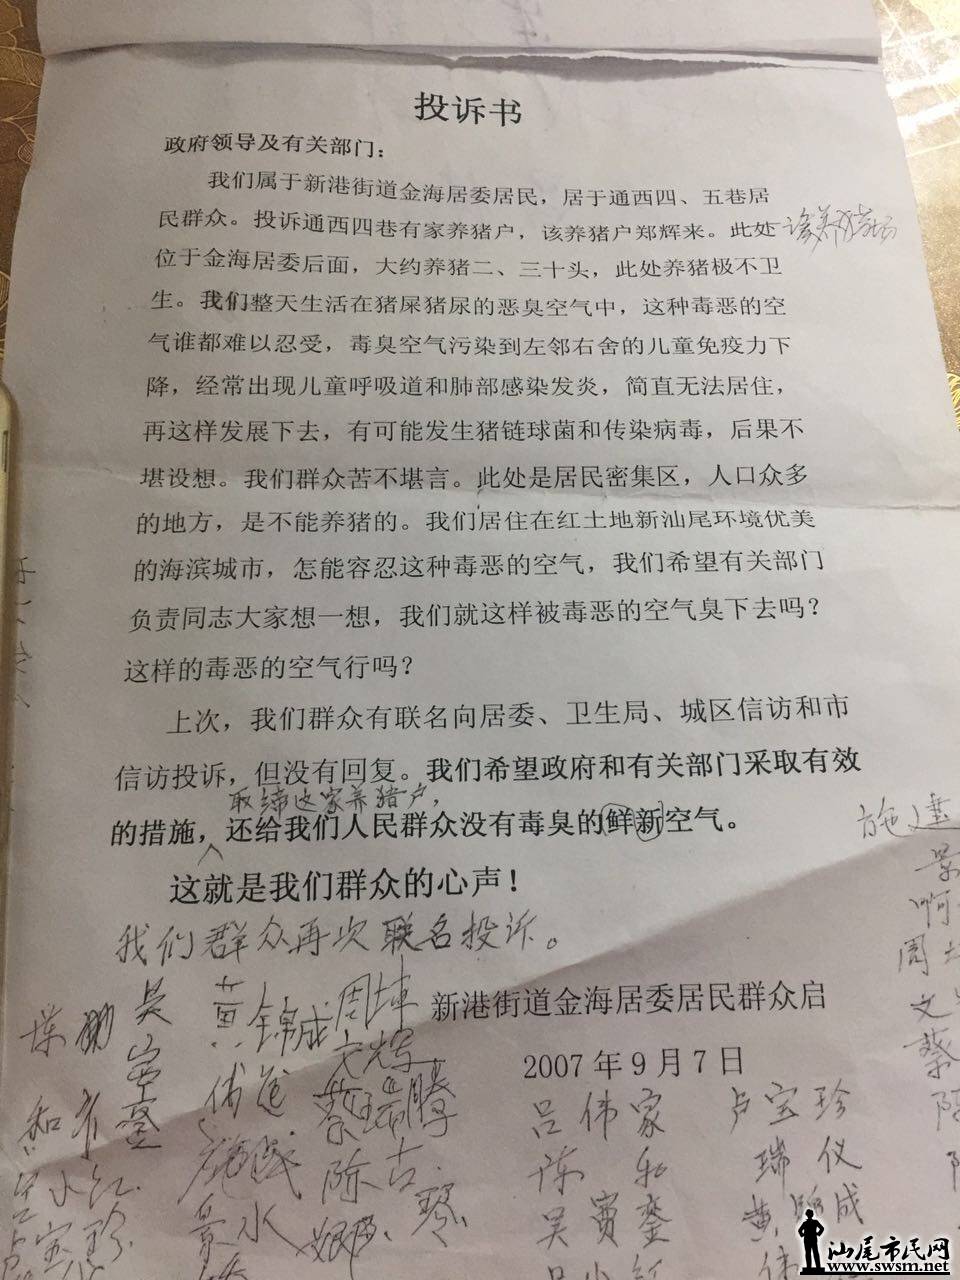 投诉书
政府领导及有关部门：
我们属于新港街道金海居委居民，居于通西四、五巷居
民群众。投诉通西四巷有家养猪户，该养猪户郑辉来。此处
位于金海居委后面，大约养猪二、三十头，此处养猪极不卫
生。我们整天生活在猪屎猪尿的恶臭空气中，这种毒恶的空
气谁都难以忍受，毒臭空气污染到左邻右舍的儿童免疫力下
降，经常出现儿童呼吸道和肺部感染发炎，简直无法居住，
再这样发展下去，有可能发生猪链球菌和传染病毒，后果不
堪设想。我们群众苦不堪言。此处是居民密集区，人口众多
的地方，是不能养猪的。我们居住在红土地新汕尾环境优美
的海滨城市，怎能容忍这种毒恶的空气，我们希望有关部门
负责同志大家想一想，我们就这样被毒恶的空气臭下去吗？
这样的毒恶的空气行吗？
上次，我们群众有联名向居委、卫生局、城区信访和市
信访投诉，但没有回复。我们希望政府和有关部门采取有效
取缔这家养猪户，
的措施，还给我们人民群众没有毒臭的鲜新空气。
这就是我们群众的心声！
我们群众再次联名投诉。
新港街道金海居委居民群众启
2007年9月7日
黄锦成 周坤
文辉
蔡瑞腾
陈古
吕伟家 卢宝珍
陈和 瑞仪
吴宝銮 黄锦成
施建
周
文
蔡
景水
汕尾市民网
www.swsm.net